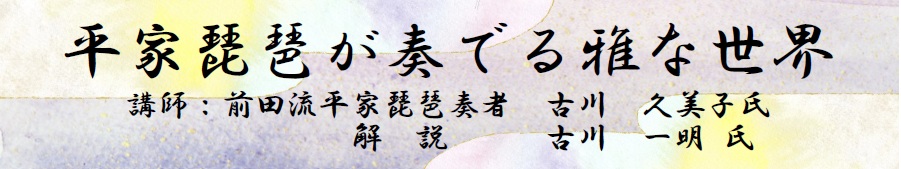 平家琵琶が奏でる雅な世界
講師：前田流平家琵琶奏者　古川　久美子氏
解　説　古川　一明 氏